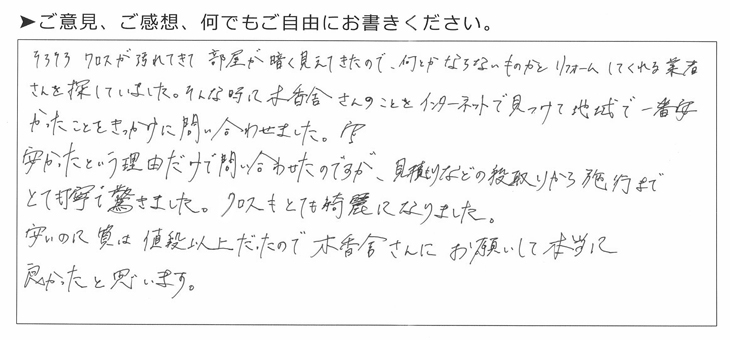 ➤ご意見、ご感想、何でもご自由にお書きください。
そろそろ クロスが汚れてきて 部屋が暗く見えてきたので、何とかならないものかと リフォームしてくれる業者
さんを探していました。そんな時に木香舎さんのことをインターネットで見つけて地域で一番安
かったことをきっかけに問い合わせました。
安かったという理由だけで問い合わせたのですが、見積りなどの段取りから施行まで
とても丁寧で驚きました。クロスもとても綺麗になりました。
安いのに質は値段以上だったので木香舎さんにお願いして本当に
良かったと思います。